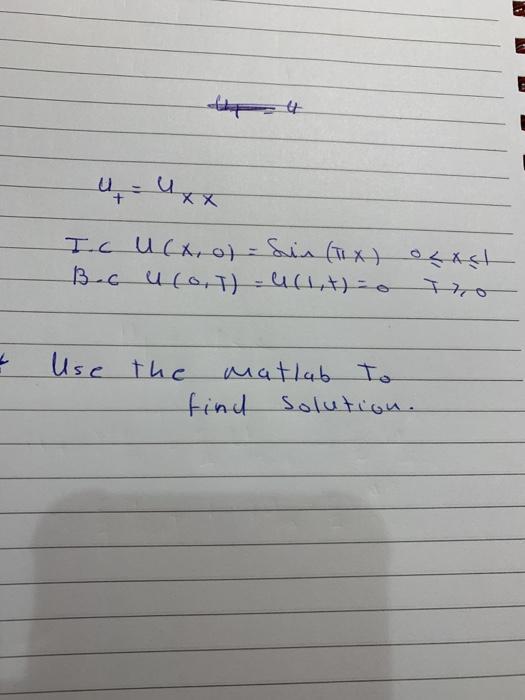 u_t = u_xx
I.C U(X,0) = Sin (πX) 0 ≤ x ≤ 1
B.C U(0,T) = U(1,t) = 0 T ≥ 0
Use the matlab To
find solution.